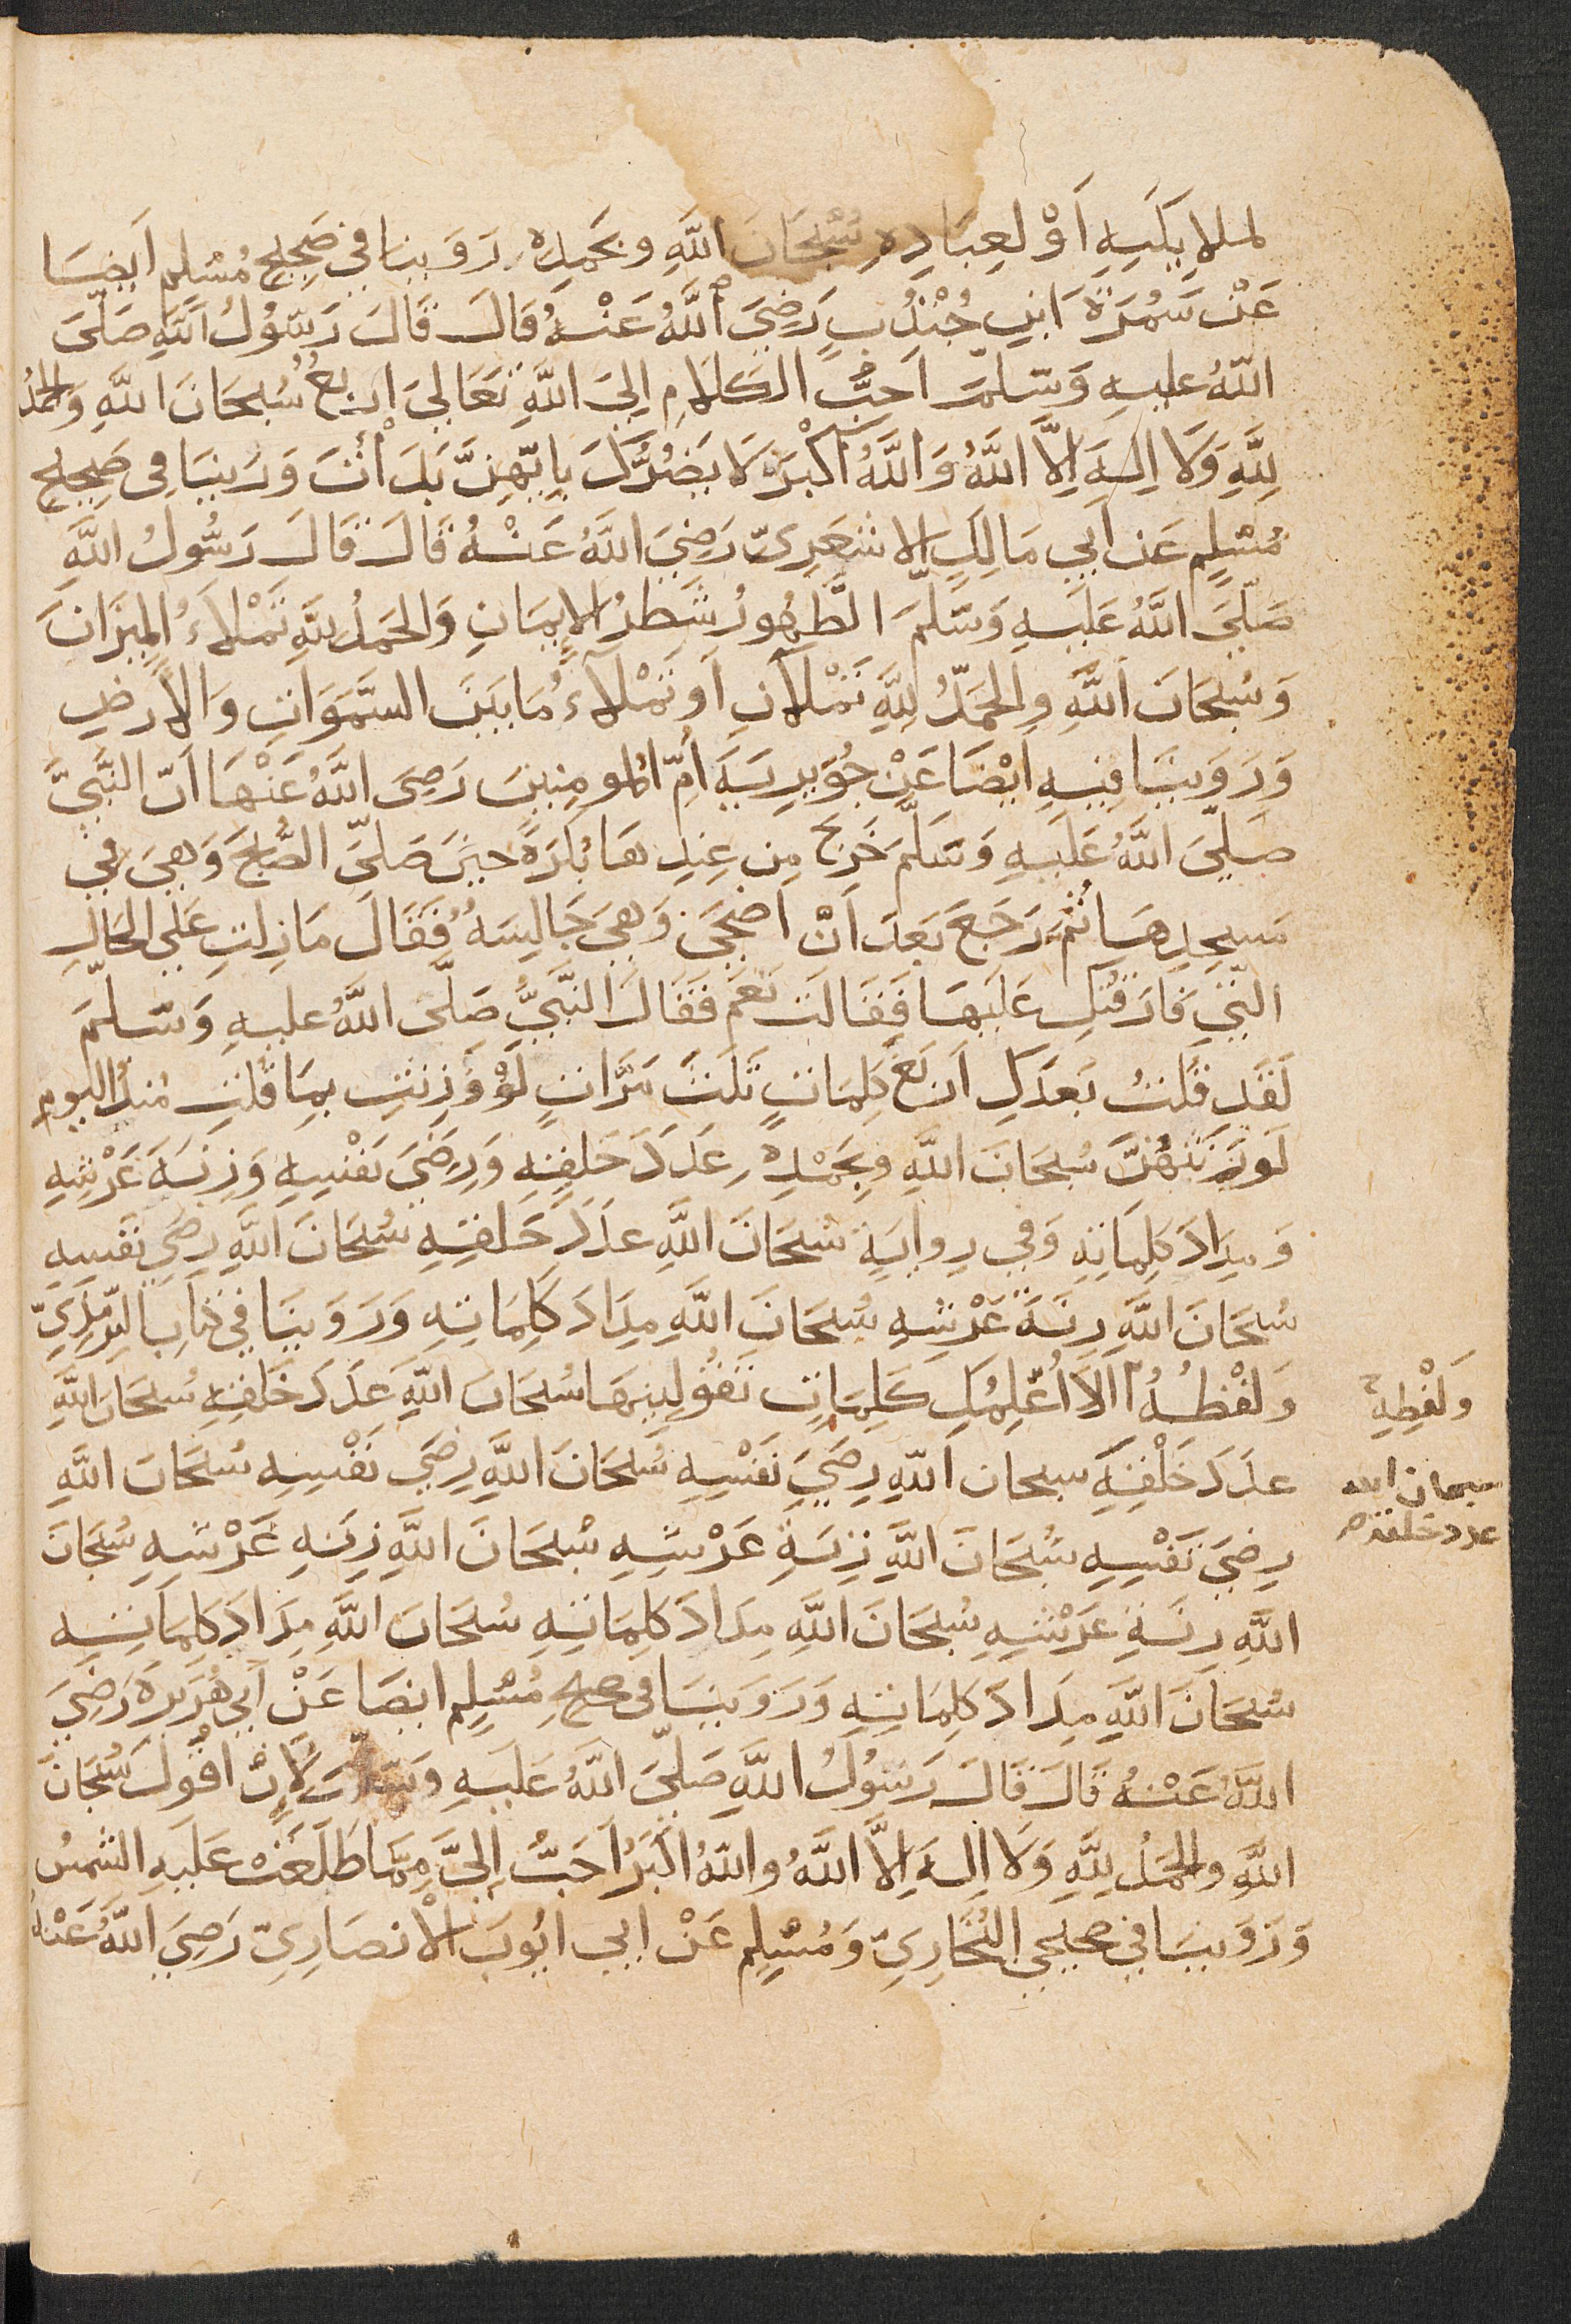 لملايكَتِهِ اَوْ لِعِبَادِهِ سُبْحَانَ اللَّهِ وبحَمدِهِ رَوَينا في صَحِيحِ مُسْلم اَيضًا
عَنْ سَمُرَةَ ابنِ جُنْدُبٍ رَضِيَ اللَّهُ عَنْهُ قَالَ قَالَ رَسُولُ اللَّهِ صَلّىَ
اللهُ عليهِ وَسَلمَّ اَحبُّ الكَلاَمِ اِليَ اللَّهِ تَعَالَيَ اَربعٌ سُبحَانَ اللَّهِ وَالحَمدُ
لِلَّهِ وَلَا اِلَهَ اِلاَّ اللَّهُ وَاللَّهُ اَكْبَرُ لَا يَضُرُّكَ بِايِّهِنَّ بَدَاْتَ وَرَوينَا فى صَحِيحِ
مُسْلِمٍ عَن اَبي مَالِكٍ الاشعَرِىّ رَضِيَ اللَّهُ عَنْهُ قَالَ قَالَ رَسُولُ اللَّهِ
صَلّيَ اللَّهُ عَلَيهِ وَسَلَّمَ الطَّهُورُ شَطرُ الاِيمَانِ وَالحَمدُ لِلَّهِ تَمْلاَءُ المِيزَانَ
وَسُبحَانَ اللَّهِ والحَمدُ لِلَّهِ تَمْلآنِ اَو تَمْلآءُ مَا بَينَ السَّمَوَاتِ وَالاَرضِ
وَرَوَينَا فِيهِ اَيْضًا عَنْ جُوَيرِيَةَ اُمِّ المُومِنِينَ رَضِىَ اللَّهُ عَنْهَا اَنّ النَّبيَّ
صَلّيَ اللَّهُ عَلَيهِ وَسَلَّمَ خَرَجَ مِن عِندِهَا بُكرَةً حِينَ صَليّ الصُّبحَ وَهيَ في
مَسجِدِهَا ثُمّ رَجَعَ بَعدَ اَنْ اَضحَي وَهيَ جَالِسَةٌ فَقَالَ مَازِلتِ عَلَي الحَالِ
التّي فَارَقتُكِ عَلَيهَا فَقَالَت نَعَم فَقَالَ النَّبيُّ صَلّى اللَّهُ عليهِ وَسَلمَّ
لَقَد قُلتُ بَعدَكِ اَربَعَ كَلِمَاتٍ ثَلَثَ مَرَّاتٍ لَوْ وُزِنَتِ بِمَا قُلتِ مُنذُ اليوم
لَوَزَنَتهُنَّ سُبحَانَ اللَّهِ وبِحَمْدِهِ عَدَدَ خَلقِهِ وَرِضَيَ نَفْسِهِ وَزِنَةَ عَرْشِهِ
وَمِدَادَ كَلِمَاتِهِ وَفي رِوايَةٍ سُبحَانَ اللَّهِ عدَدَ خَلقِهِ سُبحَانَ اللَّهِ رِضَي نَفسِهِ
سُبحَانَ اللَّهِ زِنَةَ عَرْشِهِ سُبحَانَ اللَّهِ مِدَادَ كَلِمَاتِهِ وَرَوَينَا في كتَابِ التِّرمِذِىِّ
وَلَفْظُهُ اَلاَ اُعَلِّمُكِ كَلِمَاتٍ تَقُولِينهَا سُبحَانَ اللَّهِ عَدَدَ خَلقِهِ سُبحَانَ اللَّهِ
عدَدَ خَلْقِهِ سبحان اللَّهِ رِضَيَ نَفْسِهِ سُبحَانَ اللَّهِ رِضَيَ نَفْسِهِ سُبحَانَ اللَّهِ
رِضَيَ نَفْسِهِ سُبحَانَ اللَّهِ زِنَةَ عَرْشِهِ سُبحَانَ اللَّهِ زِنَةِ عَرْشِهِ سُبحَانَ
اللَّهِ زِنَةَ عَرْشِهِ سُبحَانَ اللَّهِ مِدَادَ كَلِمَاتِهِ سُبحَانَ اللَّهِ مِدَادَ كَلِمَاتِهِ
سُبحَانَ اللَّهِ مِدَادَ كَلِمَاتِهِ وَرَوَينَا فى صحيحِ مُسْلِم ايضًا عَنْ اَبي هُرَيرَةَ رَضِيَ
اللَّهُ عَنْهُ قَالَ قَالَ رَسُولُ اللَّهِ صَلّيَ اللَّهُ عَلَيهِ وَسَلَّمَ لاَنْ اقُولَ سُبحَانَ
اللَّهِ والحَمدُ لِلَّهِ وَلَا اِلهَ اِلاَّ اللَّهُ واللهُ اكبَرُ اَحَبُّ اِلَيَّ مِمَّا طَلَعَتْ عَلَيهِ الشمسُ
وَرَوَينَا في صَحيحَي البُخَارِيّ وَمُسْلِم عَنْ ابي ايُوبَ الْانصَارِىّ رَضِيَ اللَّهُ عَنْهُ
وَلَفْظِهِ
سبحان الله
عدد خلقه